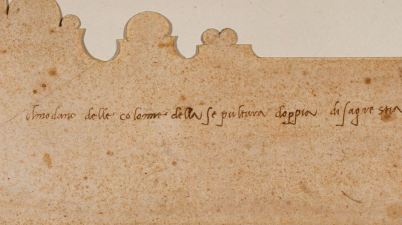 el modano delle colonne della sepultura doppia di sagrestia